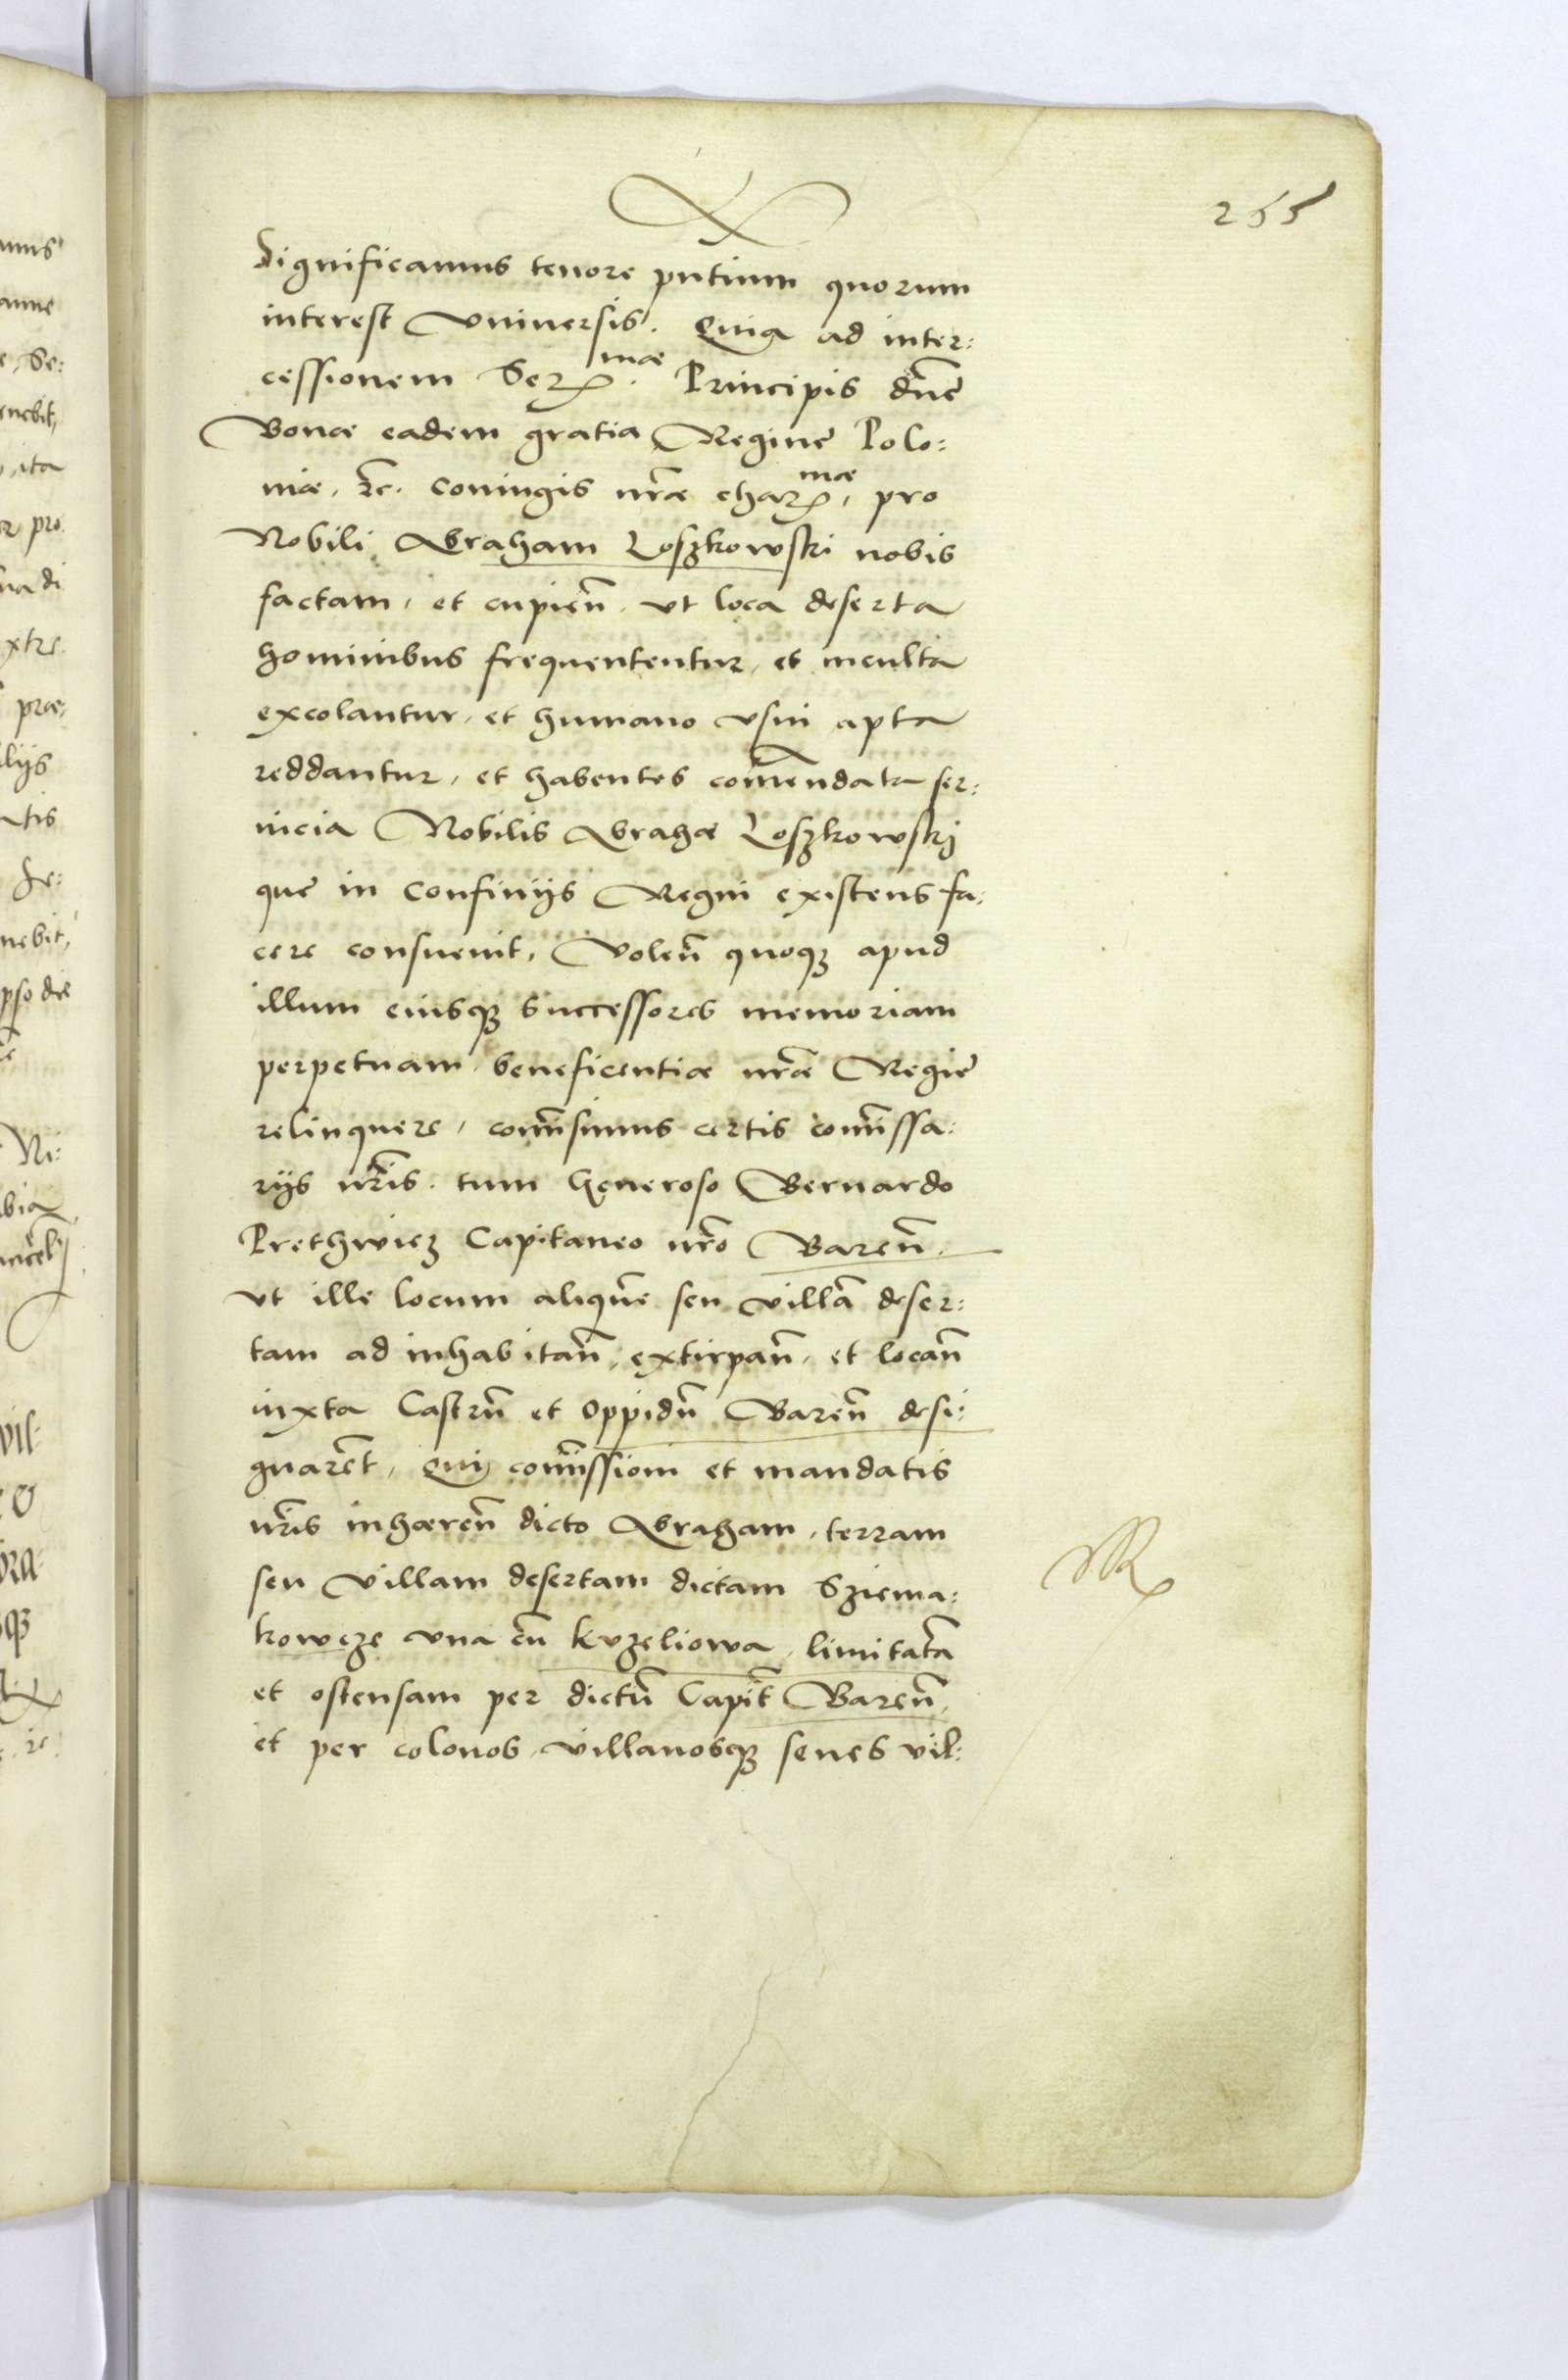 255
Significamus tenore pñtium quorum
interest Vniuersis. Quia ad inter:
cessionem Ser.mae Principis dñe
Bonae eadem gratia Regine Polo:
niae. &c. Coniugis nrãe char.mae, pro
Nobili Abraham Loszkowski nobis
factam, et cupieñ. vt loca deserta
hominibus frequententur, et inculta
excolantur, et humano vsui apta
reddantur, et habentes com̃endata ser:
uicia Nobilis Abrahae Loszkowskj
que in Confinijs Regni existens fa:
cere consueuit, Voleñ quoqȝ apud
illum eiusqȝ successores memoriam
perpetuam beneficentiae nrãe Regie
relinquere, com̃isimus certis com̃issa:
rijs nrĩs. tum Generoso Bernardo
Prethwicz Capitaneo nrõ Bareñ.
vt ille locum aliquẽ seu villã deser:
tam ad inhabitañ, extirpañ, et locañ
iuxta Castrũ et Oppidũ Bareñ desi:
gnarẽt, Qui com̃issioni et mandatis
nrĩs inhaereñ dicto Abraham, terram
seu Villam desertam dictam Sziema:
kowcze vna cũ Kvzeliowa, limitatã
et ostensam per dictũ Capit̃ Bareñ,
et per colonos villanosqȝ senes vil: